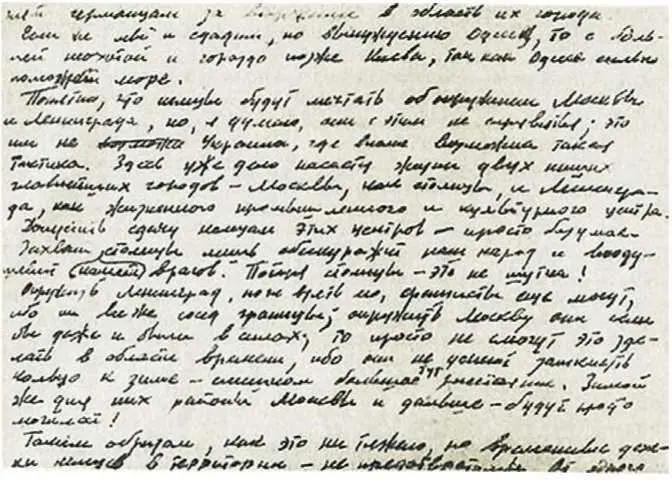 германцам за вторжение в область их города.
Если же мы и сдадим, по вынуждению Одессу, то с боль-
шей неохотой и гораздо позже Киева, так как Одессе сильно
поможет море.
Понятно, что немцы будут мечтать об окружении Москвы
и Ленинграда, но, я думаю, они с этим не справятся; это
им не Украина, где вполне возможна такая
тактика. Здесь уже дело касается жизни двух наших
главнейших городов – Москвы, как столицы, и Ленингра-
да, как жизненного промышленного и культурного центра.
Допустить сдачу немцам этих центров – просто безумие.
Захват столицы лишь обескуражит наш народ и вооду-
шевит (нашей) врагов. Потеря столицы – это не шутка!
Окружить Ленинград, но не взять его, фашисты еще могут,
ибо он все же сосед границы; окружить Москву они если
бы даже и были в силах, то просто не смогут это сде-
лать в области времени, ибо они не успеют замкнуть
кольцо к зиме – слишком большое тут расстояние. Зимой
же для них районы Москвы и дальше – будут просто
могилой!
Таким образом, как это ни тяжело, но временные
немцев в территории – не от одного